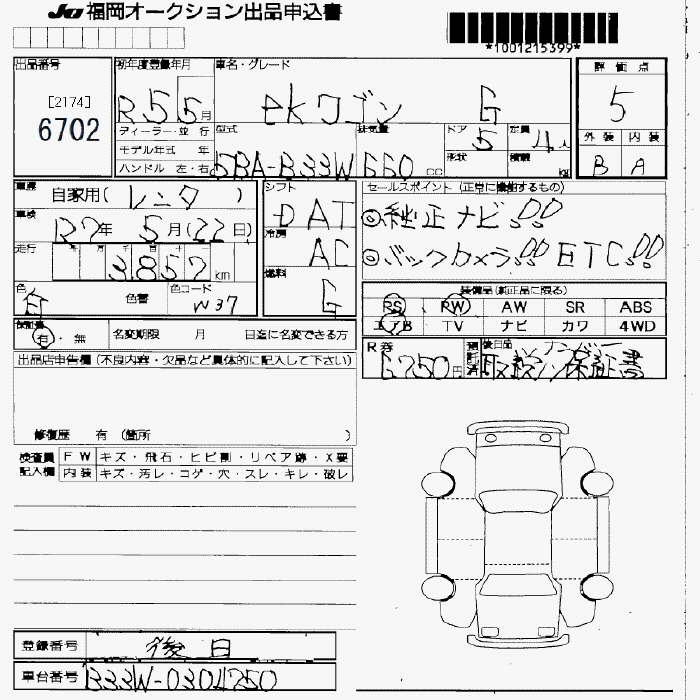 JU福岡オークション出品申込書
*1001215399*
出品番号
[2174]
6702
初年度登録年月
R55月
車名・グレード
ekワゴン G
評価点
5
外装 内装
B A
ディーラー・並行
モデル年式 年
ハンドル 左・右
型式
5BA-B33W
排気量
660 cc
ドア
5
形状
定員
4人
積載
kg
車歴
自家用(レンタ)
車検
R7年 5月(22日)
走行
3857km
色
白
色替
色コード
W37
シフト
DAT
冷房
AC
燃料
G
セールスポイント(正常に機能するもの)
◎純正ナビ!!
◎バックカメラ!! ETC!!
装備品(純正品に限る)
RS RW AW SR ABS
エアB TV ナビ カワ 4WD
有・無
名変期限 月 日迄に名変できる方
R券
6750円
預託済
後日品 ナンバー
取説/保証書
出品店申告欄(不良内容・欠品など具体的に記入して下さい)
修復歴 有 (箇所 )
検査員記入欄
FW キズ・飛石・ヒビ割・リペア跡・X要
内装 キズ・汚レ・コゲ・穴・スレ・キレ・破レ
登録番号 後日
車台番号 B33W-0304750